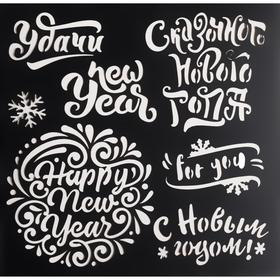 Удачи
Сказочного
Нового
года
new
Year
for you
Happy
New
Year
С Новым
годом!